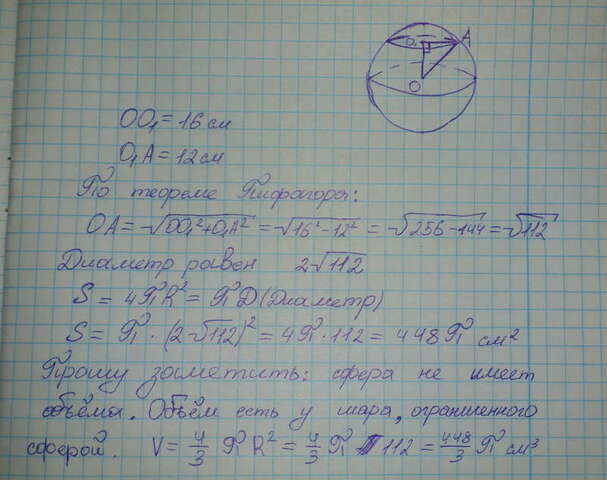 A
O₁
O
OO₁ = 16 см
O₁A = 12 см
По теореме Пифагора:
OA = √OO₁² + O₁A² = √16² - 12² = √256 - 144 = √112
Диаметр равен 2√112
S = 4ПR² = ПD (Диаметр)
S = П · (2√112)² = 4П · 112 = 448П см²
Прошу заметить: сфера не имеет
объёма. Объём есть у шара, ограниченного
сферой. V = 4/3 ПR² = 4/3 П 112 = 448/3 П см³